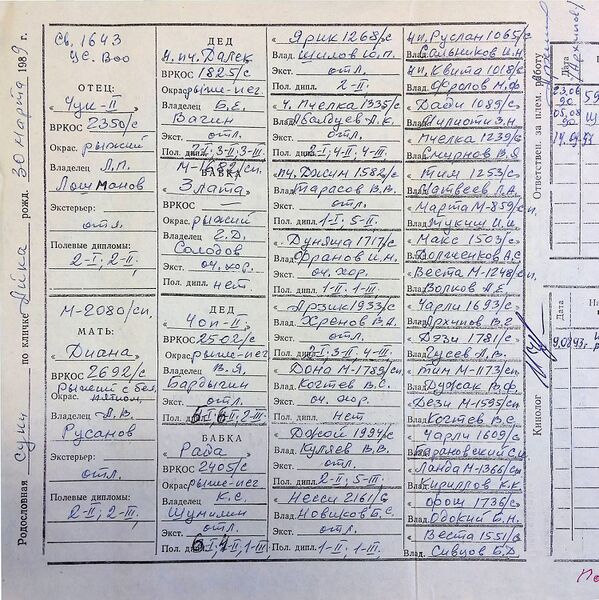 Родословная суки по кличке Айна рожд. 30 марта 1989 г.
Св. 1643
УС. Воо
ОТЕЦ:
"Чук-II
ВРКОС 2350/с
Окрас. рыжий
Владелец Л.П.
Лошманов
Экстерьер:
отл.
Полевые дипломы:
2-I; 2-II;
М-2080/сп.
МАТЬ:
"Диана"
ВРКОС 2692/с
рыжий с бел.
Окрас. пятном,
Владелец А.В.
Русанов
Экстерьер:
отл.
Полевые дипломы:
2-II; 2-III.
ДЕД
ч. пч. Далек
ВРКОС 1825/с
Окрас рыже-пег.
Владелец Б.Е.
Вагин
Экст. отл.
Пол. дипл. 2-I; 3-II; 3-III.
М-1602/сп.
БАБКА
Злата
ВРКОС
Окрас. рыжий
Владелец Г.Д.
Солодов
Экст. оч. хор.
Пол. дипл. нет
ДЕД
"Чоп-II
ВРКОС 2502/с
Окрас рыже-пег
Владелец В.Я.
Бардыгин
Экст. отл.
Пол. дипл. 2-III.
БАБКА
"Рада
ВРКОС 2405/с
Окрас рыже-пег
Владелец К.С.
Шумилин
Экст. отл.
Пол. дипл. 1-II; 1-III.
"Ярик 1268/с
Влад. Шилов Ю.П.
Экст. отл.
Пол. дипл. 2-II
ч. Пчелка 1335/с
Влад.
Экст. отл.
Пол. дипл. 2-I; 4-II; 4-III
пч. Джим 1582/с
Влад. Тарасов В.В.
Экст. отл.
Пол. дипл. 1-I; 5-II.
"Дуняша 1717/с
Влад. Франов И.Н.
Экст. оч. хор.
Пол. дипл. 1-I. 1-III.
"Арзик 1933/с
Влад. Хренов В.А.
Экст. отл.
Пол. дипл. 2-I; 3-II; 4-III.
"Дона М-1789/сп.
Влад. Когтев В.С.
Экст. оч. хор.
Пол. дипл. нет
"Джой 1994/с
Влад. Куляев В.В.
Экст. отл.
Пол. дипл. 2-II; 5-III.
"Несси 2161/с
Влад. Новиков Б.С.
Экст. отл.
Пол. дипл. 1-II; 1-III.
чп. Руслан 1065/с
Влад. Сальников И.Н.
чп. Квита 1018/с
Влад. Фролов М.Ф.
"Дади 1089/с
Влад. Филиоти З.Н.
"Пчелка 1239/с
Влад. Смирнов В.Я.
"Тим 1253/с
Влад. Матвеев Л.А.
"Марта М-859/сп.
Влад. Тукиш И.И.
"Макс 1503/с
Влад. Волженков А.С.
"Веста М-1248/сп.
Влад. Волков А.Е.
"Чарли 1693/с
Влад. Архипов В.Г.
"Дези 1781/с
Влад. Гусев А.В.
"Тим М-1173/сп.
Влад. Дужак В.Ф.
"Дези М-1595/сп.
Влад. Когтев В.С.
"Чарли 1609/с
Влад. Барановский С.И.
"Ланда М-1366/сп.
Влад. Кириллов К.К.
"Фрош 1736/с
Влад. Одокий Б.Н.
"Веста 1551/с
Влад. Сивцов Б.Д.
Ответствен. за плем. работу
Кинолог
Дата
Дата
9.08.93г.